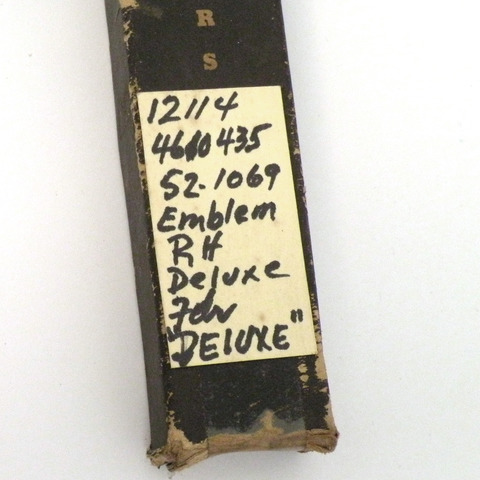 R
S
12114
4610435
52-1069
Emblem
RH
Deluxe
"DELUXE"